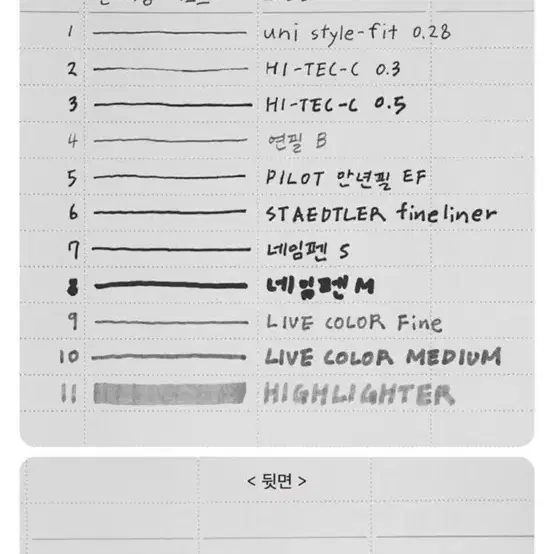 1 uni style-fit 0.28
2 HI-TEC-C 0.3
3 HI-TEC-C 0.5
4 연필 B
5 PILOT 만년필 EF
6 STAEDTLER fineliner
7 네임펜 S
8 네임펜 M
9 LIVE COLOR Fine
10 LIVE COLOR MEDIUM
11 HIGHLIGHTER
< 뒷면 >